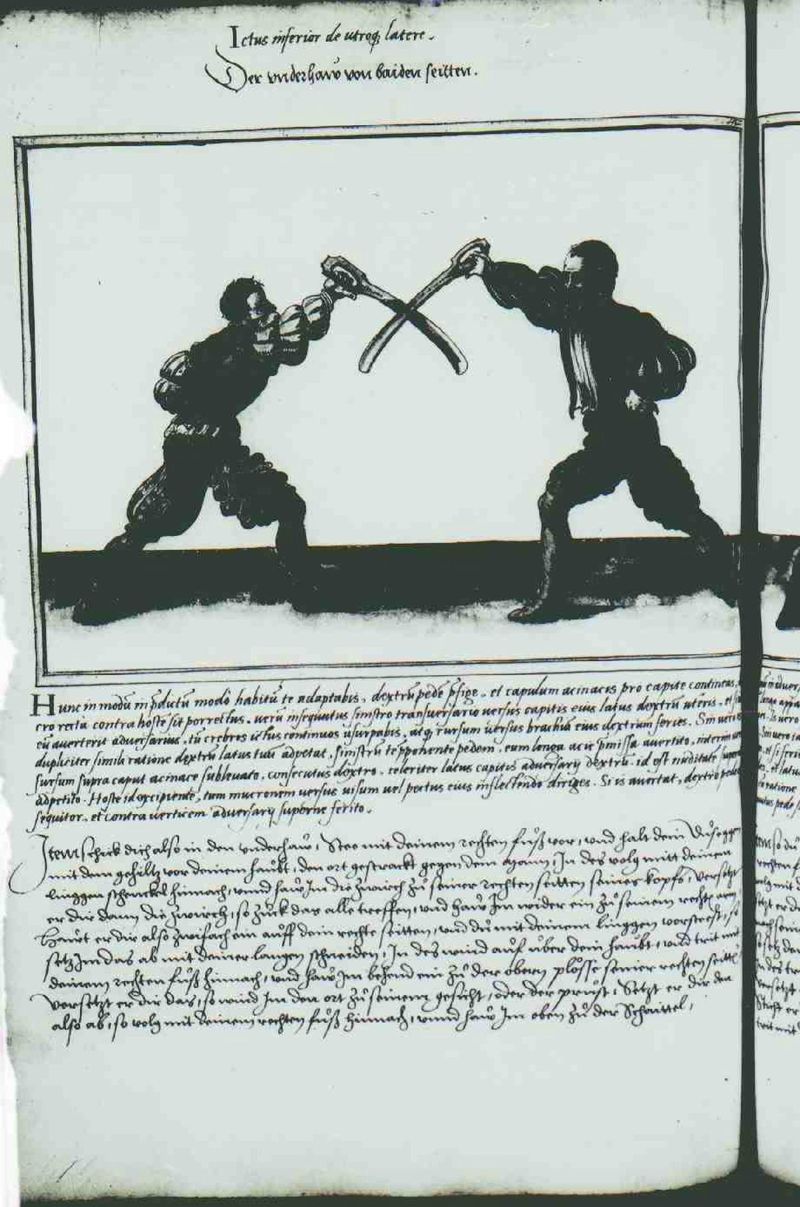 Ictus inferior de utroq latere.
Der vnderhaw von baiden seitten.
Hunc in modū in p̄dictū modo habitū te adaptabis, dextrū pede p̄fige, et capulum acinacis pro capite contineas,
cro recta contra hoste sit porrectus. verū insequutus sinistro transuersario versus capitis eius latus dextrū uteris, et
eū auerterit aduersarius, tū crebros ictus continuos usurpabis, atq rursum uersus brachiū eius dextrum feries. Sin vero
dupliciter simili ratione dextrū latus tuū adpetat, sinistrū te p̄ponente pedem, eum longa acie p̄missa auertito, interim
sursum supra caput acinace subleuato, consecutus dextro, celeriter latus capitis aduersarij dextrū, id est nuditate
adpetito. Hoste id excipiente, tum mucronem versus uisum vel pectus eius inflectendo diriges. Si is auertat, dextro pede
sequitor, et contra verticem aduersarij superne ferito.
Item schick dich also in den vnderhaw, Stee mit deinem rechten fuͦß vor, vnd halt dein Dusegge
mit dem gehiltz vor deinem haubt, den ort gestrackt gegen dem mann, In des volg mitt deinem
linggen schenckel hinnach, vnnd haw Im die zwirch zuͦ seiner rechten seitten seines kopfs, versetzt
er dir dann die zwirch, so zuck das alle treffen, vnd haw Im wider ein zuͦ seinem rechten arm
Hawt er dir also zwifach ein auff dein rechte seitten, vnd du mit deinem linggen vorsteest, so
setz Im das ab mit deiner langen schneiden, In des wind auf über dein haubt, vnd trit mit
deinem rechten fuͦß hinnach, vnd haw Im behend ein zuͦ der obern plösse seiner rechten seitten
Versetzt er dir das, so wind Im den ort zuͦ seinem gesicht, oder der prust, Setzt er dir den
also ab, so volg mit deinem rechten fuͦß hinnach, vnnd haw Im oben zuͦ der Schaittel,